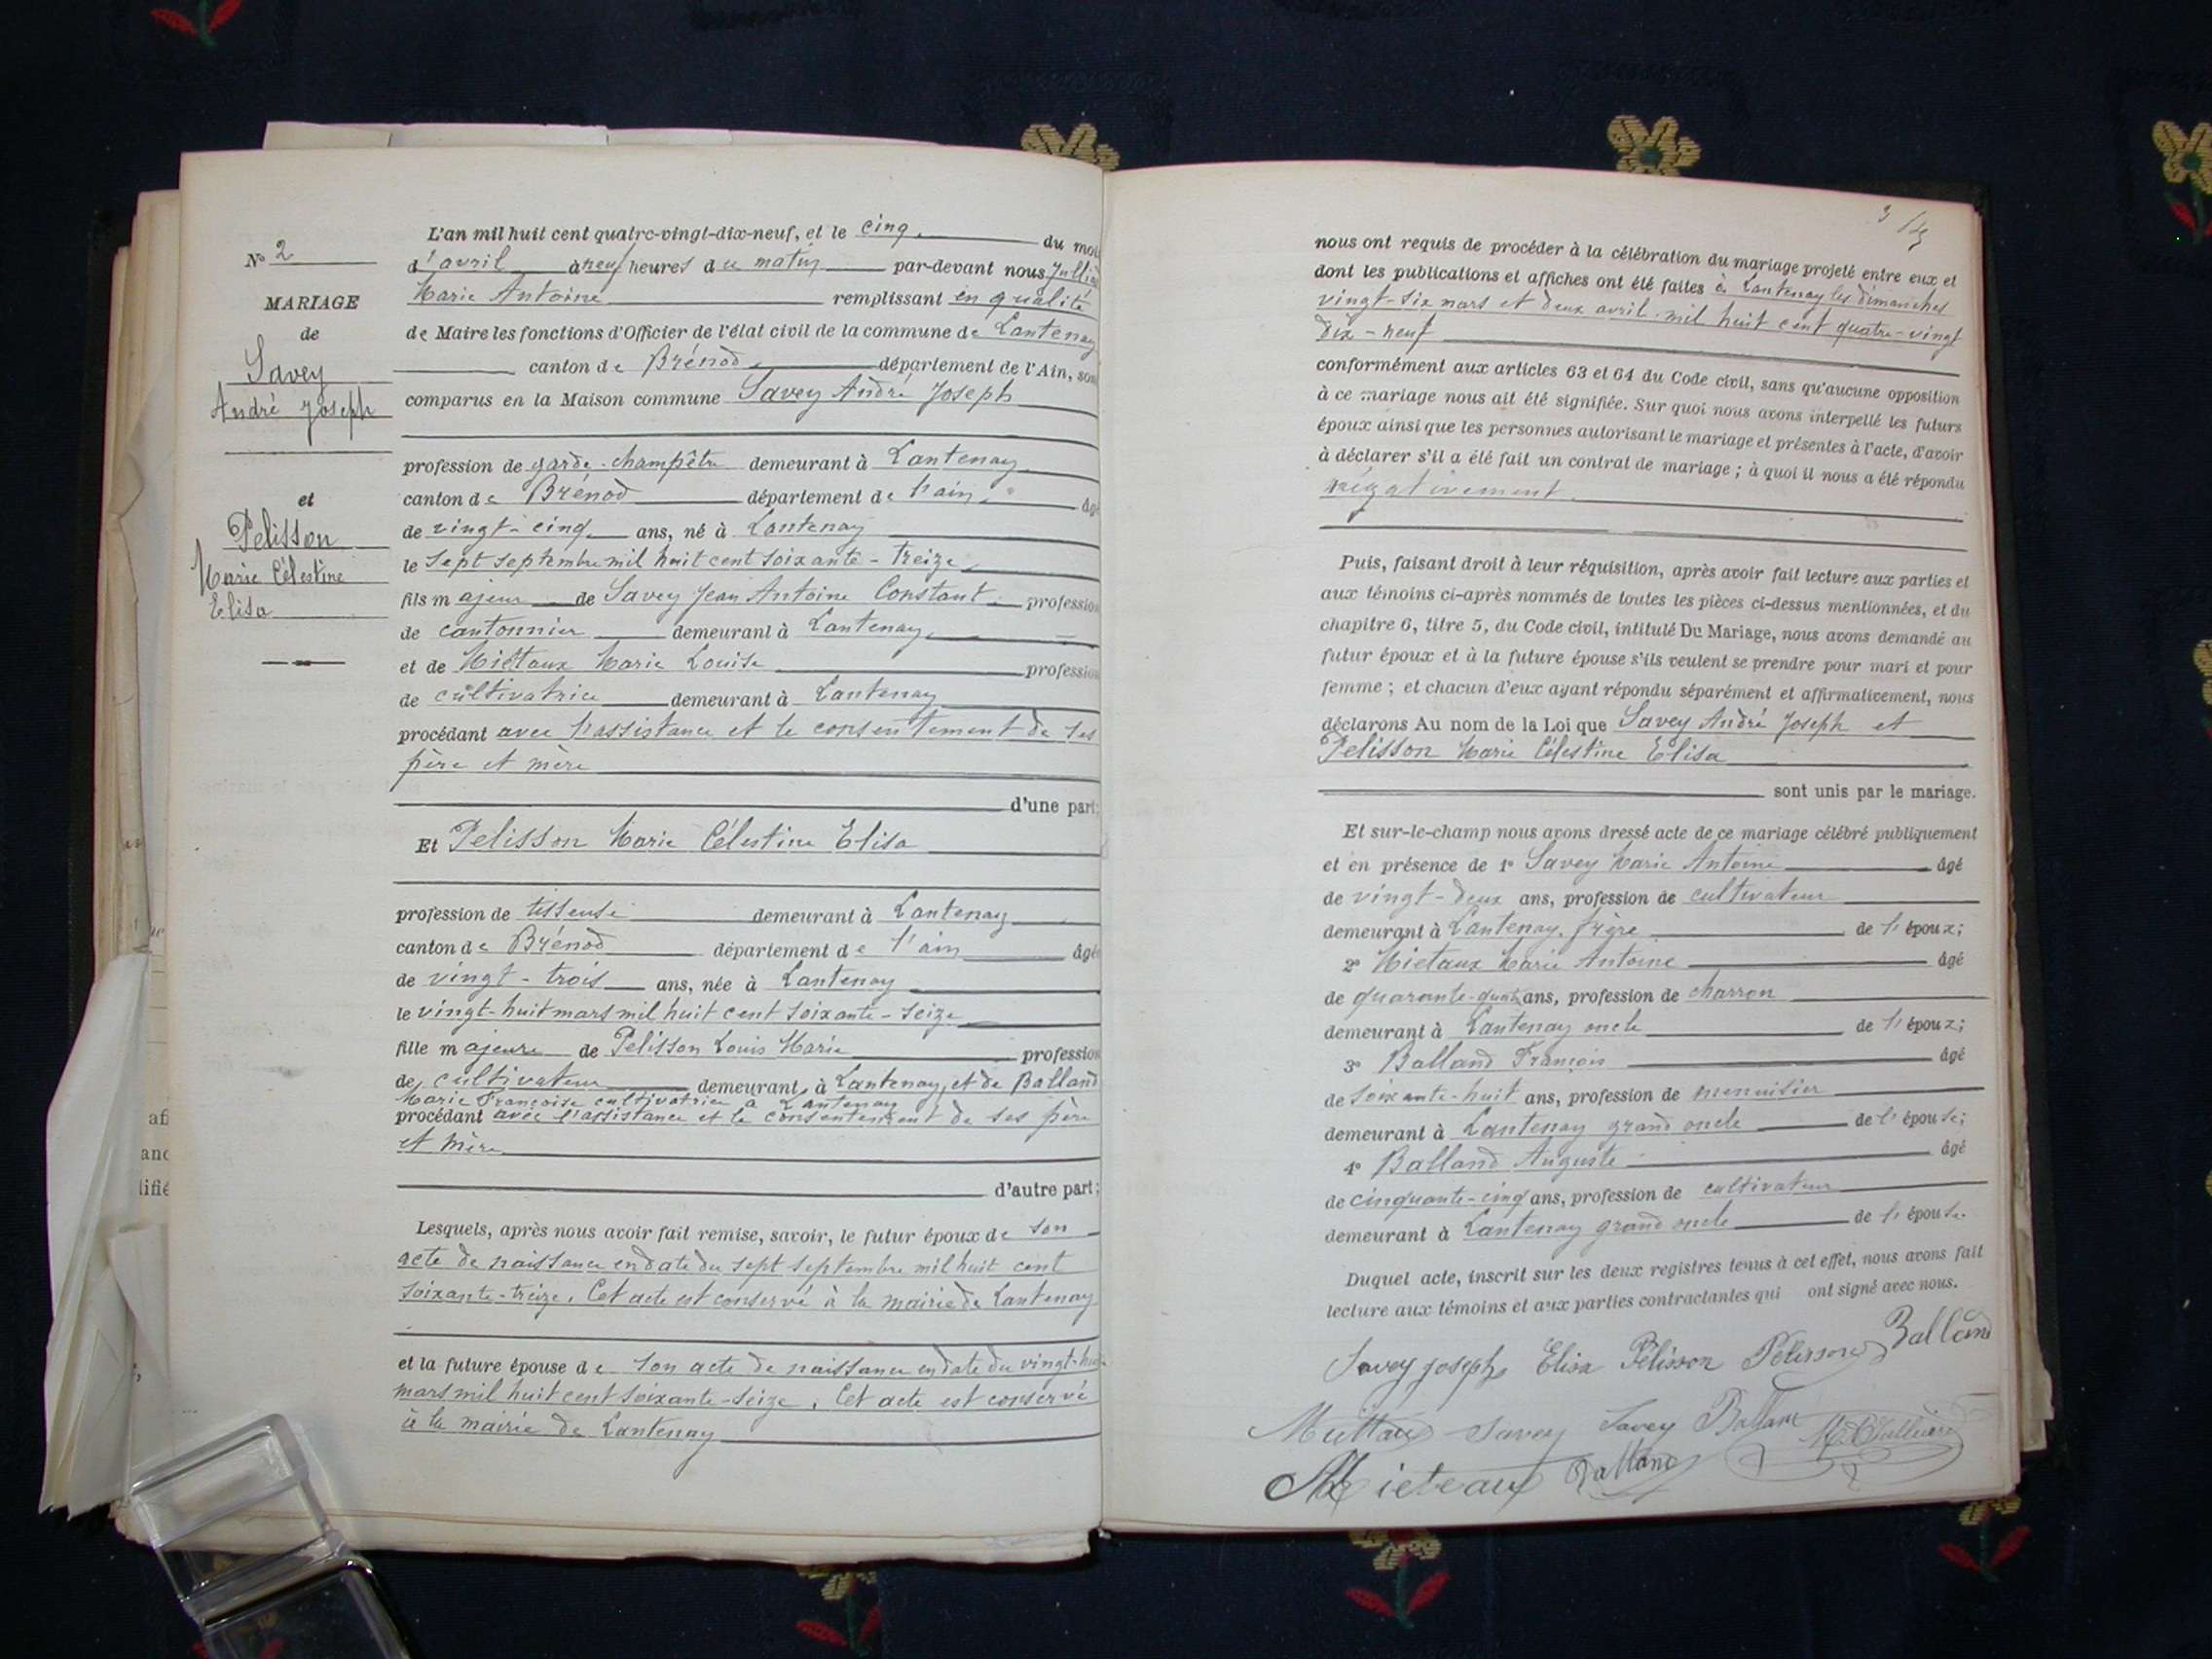 N° 2
MARIAGE
de
Savey
André Joseph
et
Pelisson
Marie Célestine
Elisa
L'an mil huit cent quatre-vingt-dix-neuf, et le cinq du mois
d'avril à neuf heures du matin par-devant nous
Marie Antoine remplissant en qualité
de Maire les fonctions d'Officier de l'état civil de la commune de Lantenay
canton de Brénod département de l'Ain, sont
comparus en la Maison commune Savey André Joseph
profession de garde-champêtre demeurant à Lantenay
canton de Brénod département de l'ain âgé
de vingt-cinq ans, né à Lantenay
le sept septembre mil huit cent soixante-treize
fils majeur de Savey Jean Antoine Constant profession
de cantonnier demeurant à Lantenay
et de Miétaux Marie Louise profession
de cultivatrice demeurant à Lantenay
procédant avec l'assistance et le consentement de ses
père et mère
d'une part;
Et Pelisson Marie Célestine Elisa
profession de tisseuse demeurant à Lantenay
canton de Brénod département de l'ain âgée
de vingt-trois ans, née à Lantenay
le vingt-huit mars mil huit cent soixante-seize
fille majeure de Pelisson Louis Marie profession
de cultivateur demeurant à Lantenay, et de Balland
Marie Françoise cultivatrice à Lantenay
procédant avec l'assistance et le consentement de ses père
et mère
d'autre part;
Lesquels, après nous avoir fait remise, savoir, le futur époux de son
acte de naissance en date du sept septembre mil huit cent
soixante-treize. Cet acte est conservé à la mairie de Lantenay
et la future épouse de son acte de naissance en date du vingt-huit
mars mil huit cent soixante-seize. Cet acte est conservé
à la mairie de Lantenay
nous ont requis de procéder à la célébration du mariage projeté entre eux et
dont les publications et affiches ont été faites à Lantenay les dimanches
vingt-six mars et deux avril mil huit cent quatre-vingt
dix-neuf
conformément aux articles 63 et 64 du Code civil, sans qu'aucune opposition
à ce mariage nous ait été signifiée. Sur quoi nous avons interpellé les futurs
époux ainsi que les personnes autorisant le mariage et présentes à l'acte, d'avoir
à déclarer s'il a été fait un contrat de mariage; à quoi il nous a été répondu
négativement.
Puis, faisant droit à leur réquisition, après avoir fait lecture aux parties et
aux témoins ci-après nommés de toutes les pièces ci-dessus mentionnées, et du
chapitre 6, titre 5, du Code civil, intitulé Du Mariage, nous avons demandé au
futur époux et à la future épouse s'ils veulent se prendre pour mari et pour
femme; et chacun d'eux ayant répondu séparément et affirmativement, nous
déclarons Au nom de la Loi que Savey André Joseph et
Pelisson Marie Célestine Elisa
sont unis par le mariage.
Et sur-le-champ nous avons dressé acte de ce mariage célébré publiquement
et en présence de 1° Savey Marie Antoine âgé
de vingt-deux ans, profession de cultivateur
demeurant à Lantenay, frère de l'époux;
2° Miétaux Marie Antoine âgé
de quarante-quatre ans, profession de charron
demeurant à Lantenay oncle de l'époux;
3° Balland François âgé
de soixante-huit ans, profession de menuisier
demeurant à Lantenay grand oncle de l'épouse;
4° Balland Auguste âgé
de cinquante-cinq ans, profession de cultivateur
demeurant à Lantenay grand oncle de l'épouse.
Duquel acte, inscrit sur les deux registres tenus à cet effet, nous avons fait
lecture aux témoins et aux parties contractantes qui ont signé avec nous.
Savey joseph Elisa Pélisson Pélisson Balland
Savey Savey Balland
Mieteaux Balland